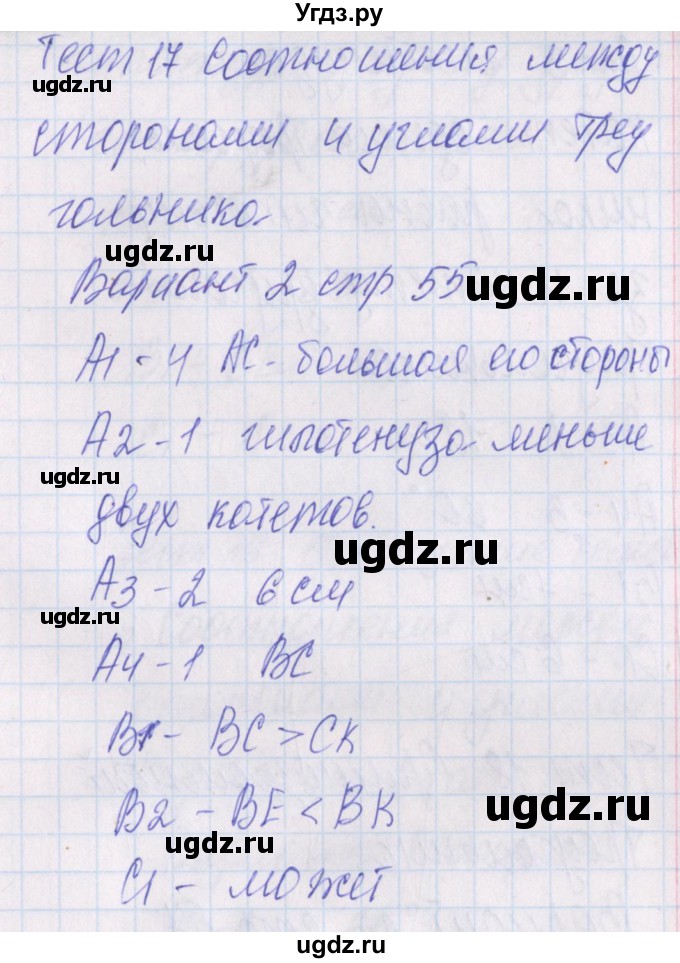 Угдз.ру
Тест 17 Соотношения между
сторонами и углами треу
гольника
ugdz.ru
Вариант 2 стр 55
ugdz.ru
А1 - 4 АС - большая его стороны
А2 - 1 гипотенуза меньше
ugdz.ru
двух катетов.
ugdz.ru
А3 - 2 6 см
ugdz.ru
А4 - 1 ВС
В1 - ВС > СК
ugdz.ru
В2 - ВЕ < ВК
ugdz.ru
С1 - может
ugdz.ru